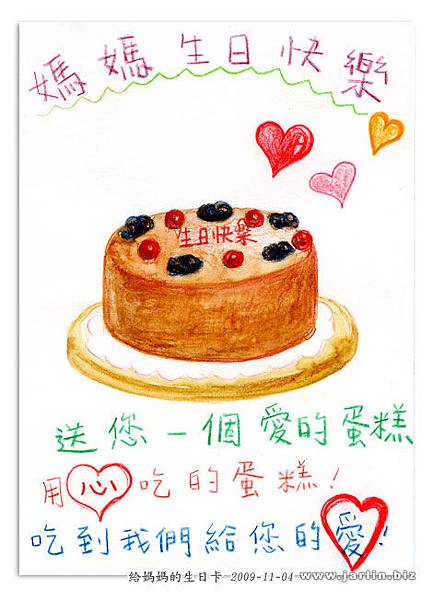 媽媽生日快樂
生日快樂
送您一個愛的蛋糕
用心吃的蛋糕！
吃到我們給您的愛！
給媽媽的生日卡 2009-11-04
www.jarlin.biz